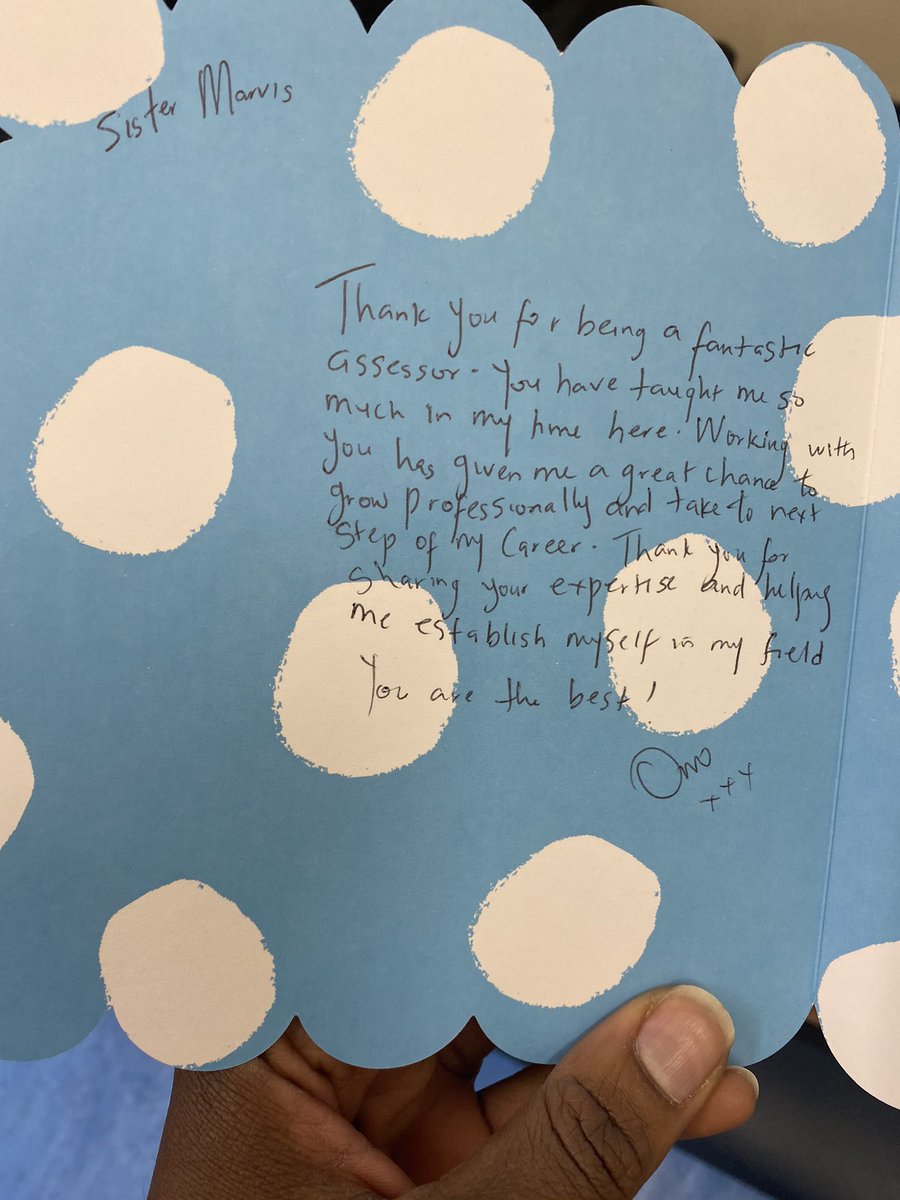 Sister Marvis
Thank you for being a fantastic
assessor. You have taught me so
much in my time here. Working with
you has given me a great chance to
grow professionally and take to next
step of my career. Thank you for
sharing your expertise and helping
me establish myself in my field
You are the best!
Omo
+++